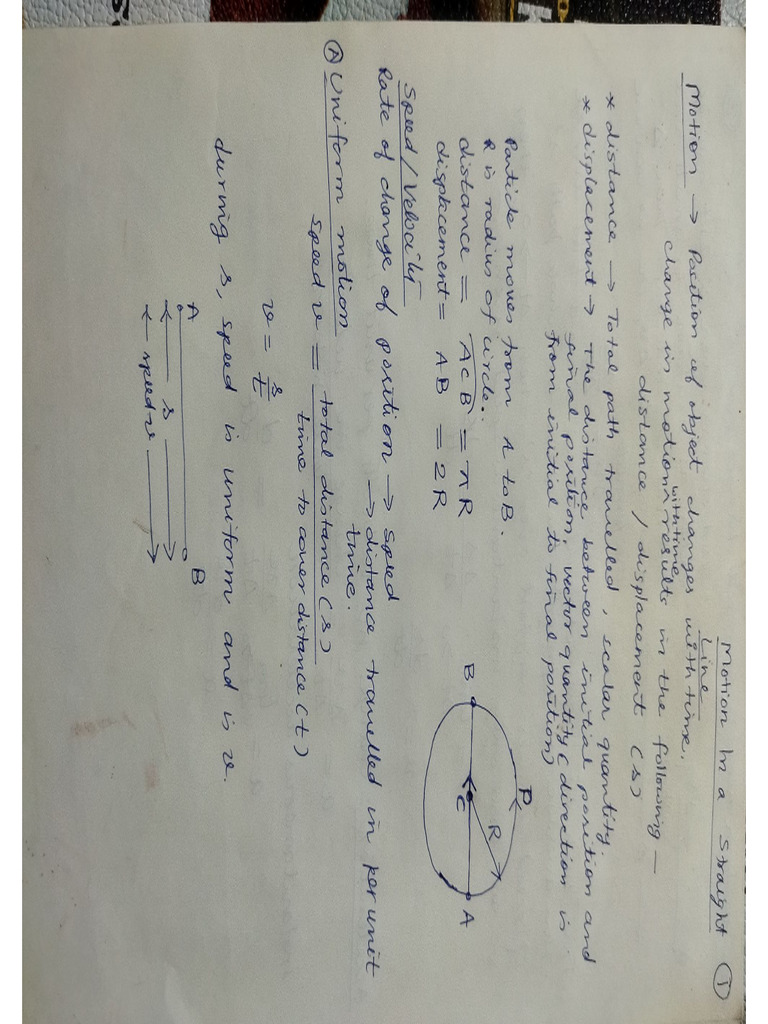 Motion In a Straight Line ①
Motion → Position of object changes with time.
change in motion ^ with time results in the following —
distance / displacement (s)
* distance → Total path travelled, scalar quantity.
* displacement → The distance between initial position and
final position, vector quantity (direction is
from initial to final position)
Particle moves from A to B.
R is radius of circle.
distance = ACB = πR
displacement = AB = 2R
P
R
B
C
A
Speed/Velocity
Rate of change of position → Speed
→ distance travelled in per unit
time.
Ⓐ Uniform motion
Speed v = total distance (s)
time to cover distance (t)
v = s/t
during s, speed is uniform and is v.
A B
← s →
← speed v →